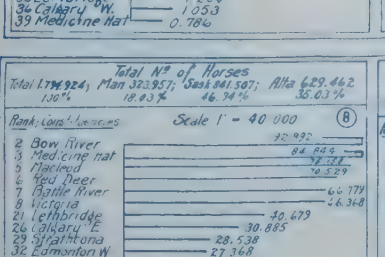 36 Calgary W. 1053
39 Medicine Hat 0.786
Total Nº of Horses
Total 1.794.924; Man 323.957; Sask 841.507; Alta 629.462
100% 18.03% 46.94% 35.03%
Rank; Scale 1" - 40 000 8
2 Bow River 92 992
3 Medicine Hat 84 844
5 Macleod
6 Red Deer 70 529
7 Battle River 66 779
8 Victoria 66.368
21 Lethbridge 40.679
26 Calgary E 30.885
29 Strathcona 28.538
32 Edmonton W 27 368